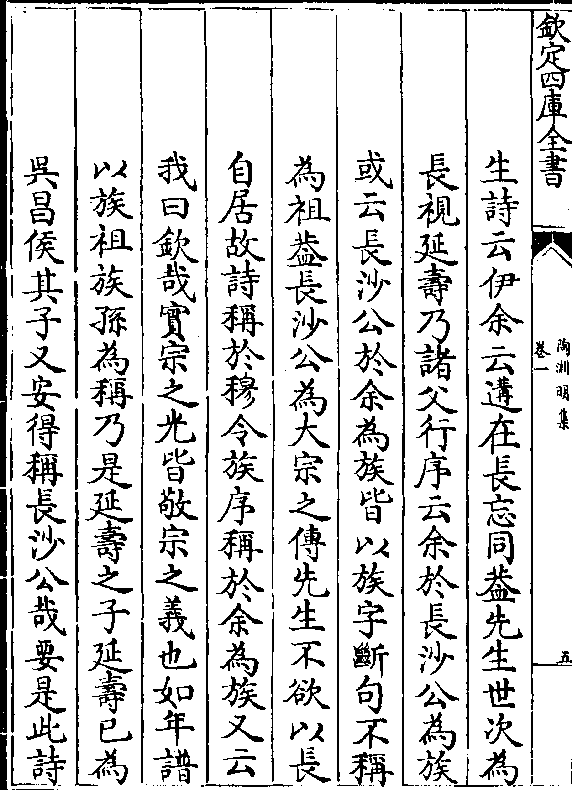 欽定四庫全書
陶淵明集
卷一
五
生詩云伊余云遘在長忘同葢先生世次為
長視延壽乃諸父行序云余於長沙公為族
或云長沙公於余為族皆以族字斷句不稱
為祖葢長沙公為大宗之傳先生不欲以長
自居故詩稱於穆令族序稱於余為族又云
我曰欽哉實宗之光皆敬宗之義也如年譜
以族祖族孫為稱乃是延壽之子延壽已為
吳昌侯其子又安得稱長沙公哉要是此詩